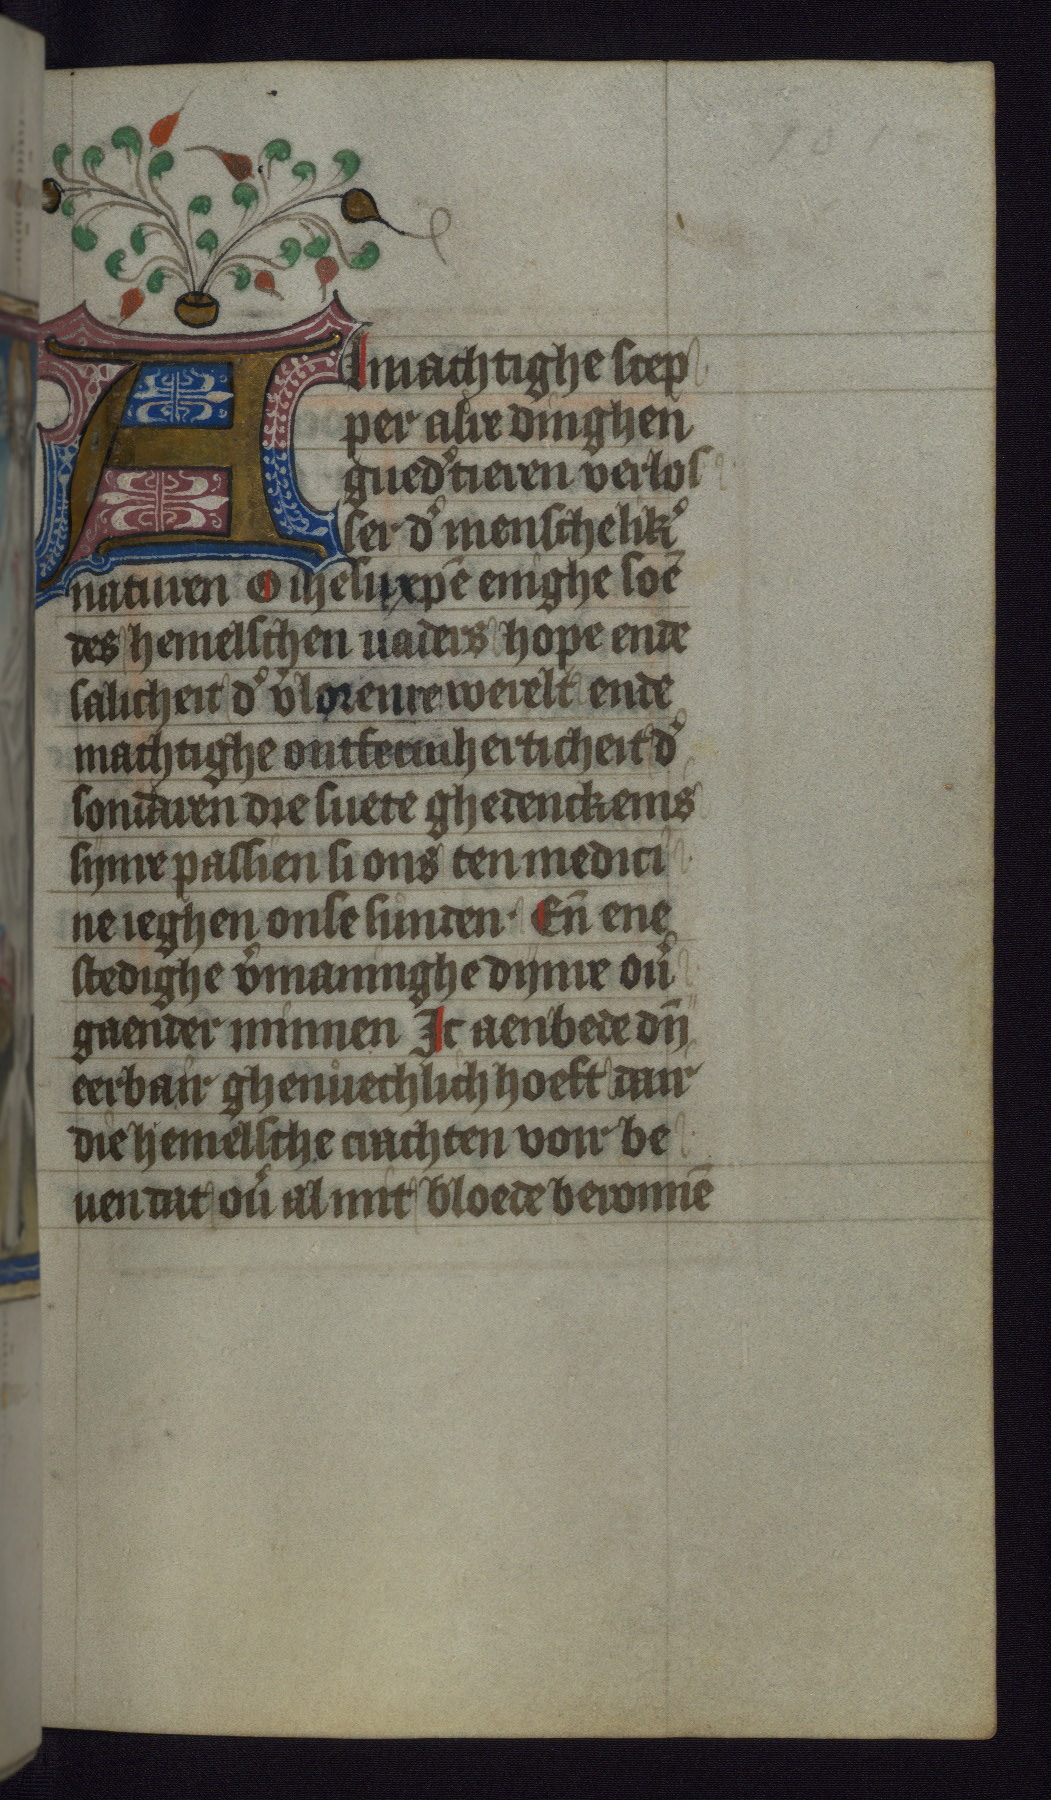 Almachtighe scep
per alre dinghen
guedᵒtieren verlos
ser dᵒ menschelikᵒ
naturen O ihesu xpē enighe soē
des hemelschen uaders hope ende
salicheit dᵒ v̓lorenre werelt ende
machtighe ontfermhertichеit dᵒ
sondaren die suete ghedenckenis
synre passien si ons ten medici
ne ieghen onse sunden · En̄ ene
stedighe v̓maninghe dynre ou̓
gaender minnen Ic aenbede dyn̄
eerbair ghenuechlich hoeft dair
die hemelsche crachten voir be
uen dat ou̓ al mit bloede beronnē